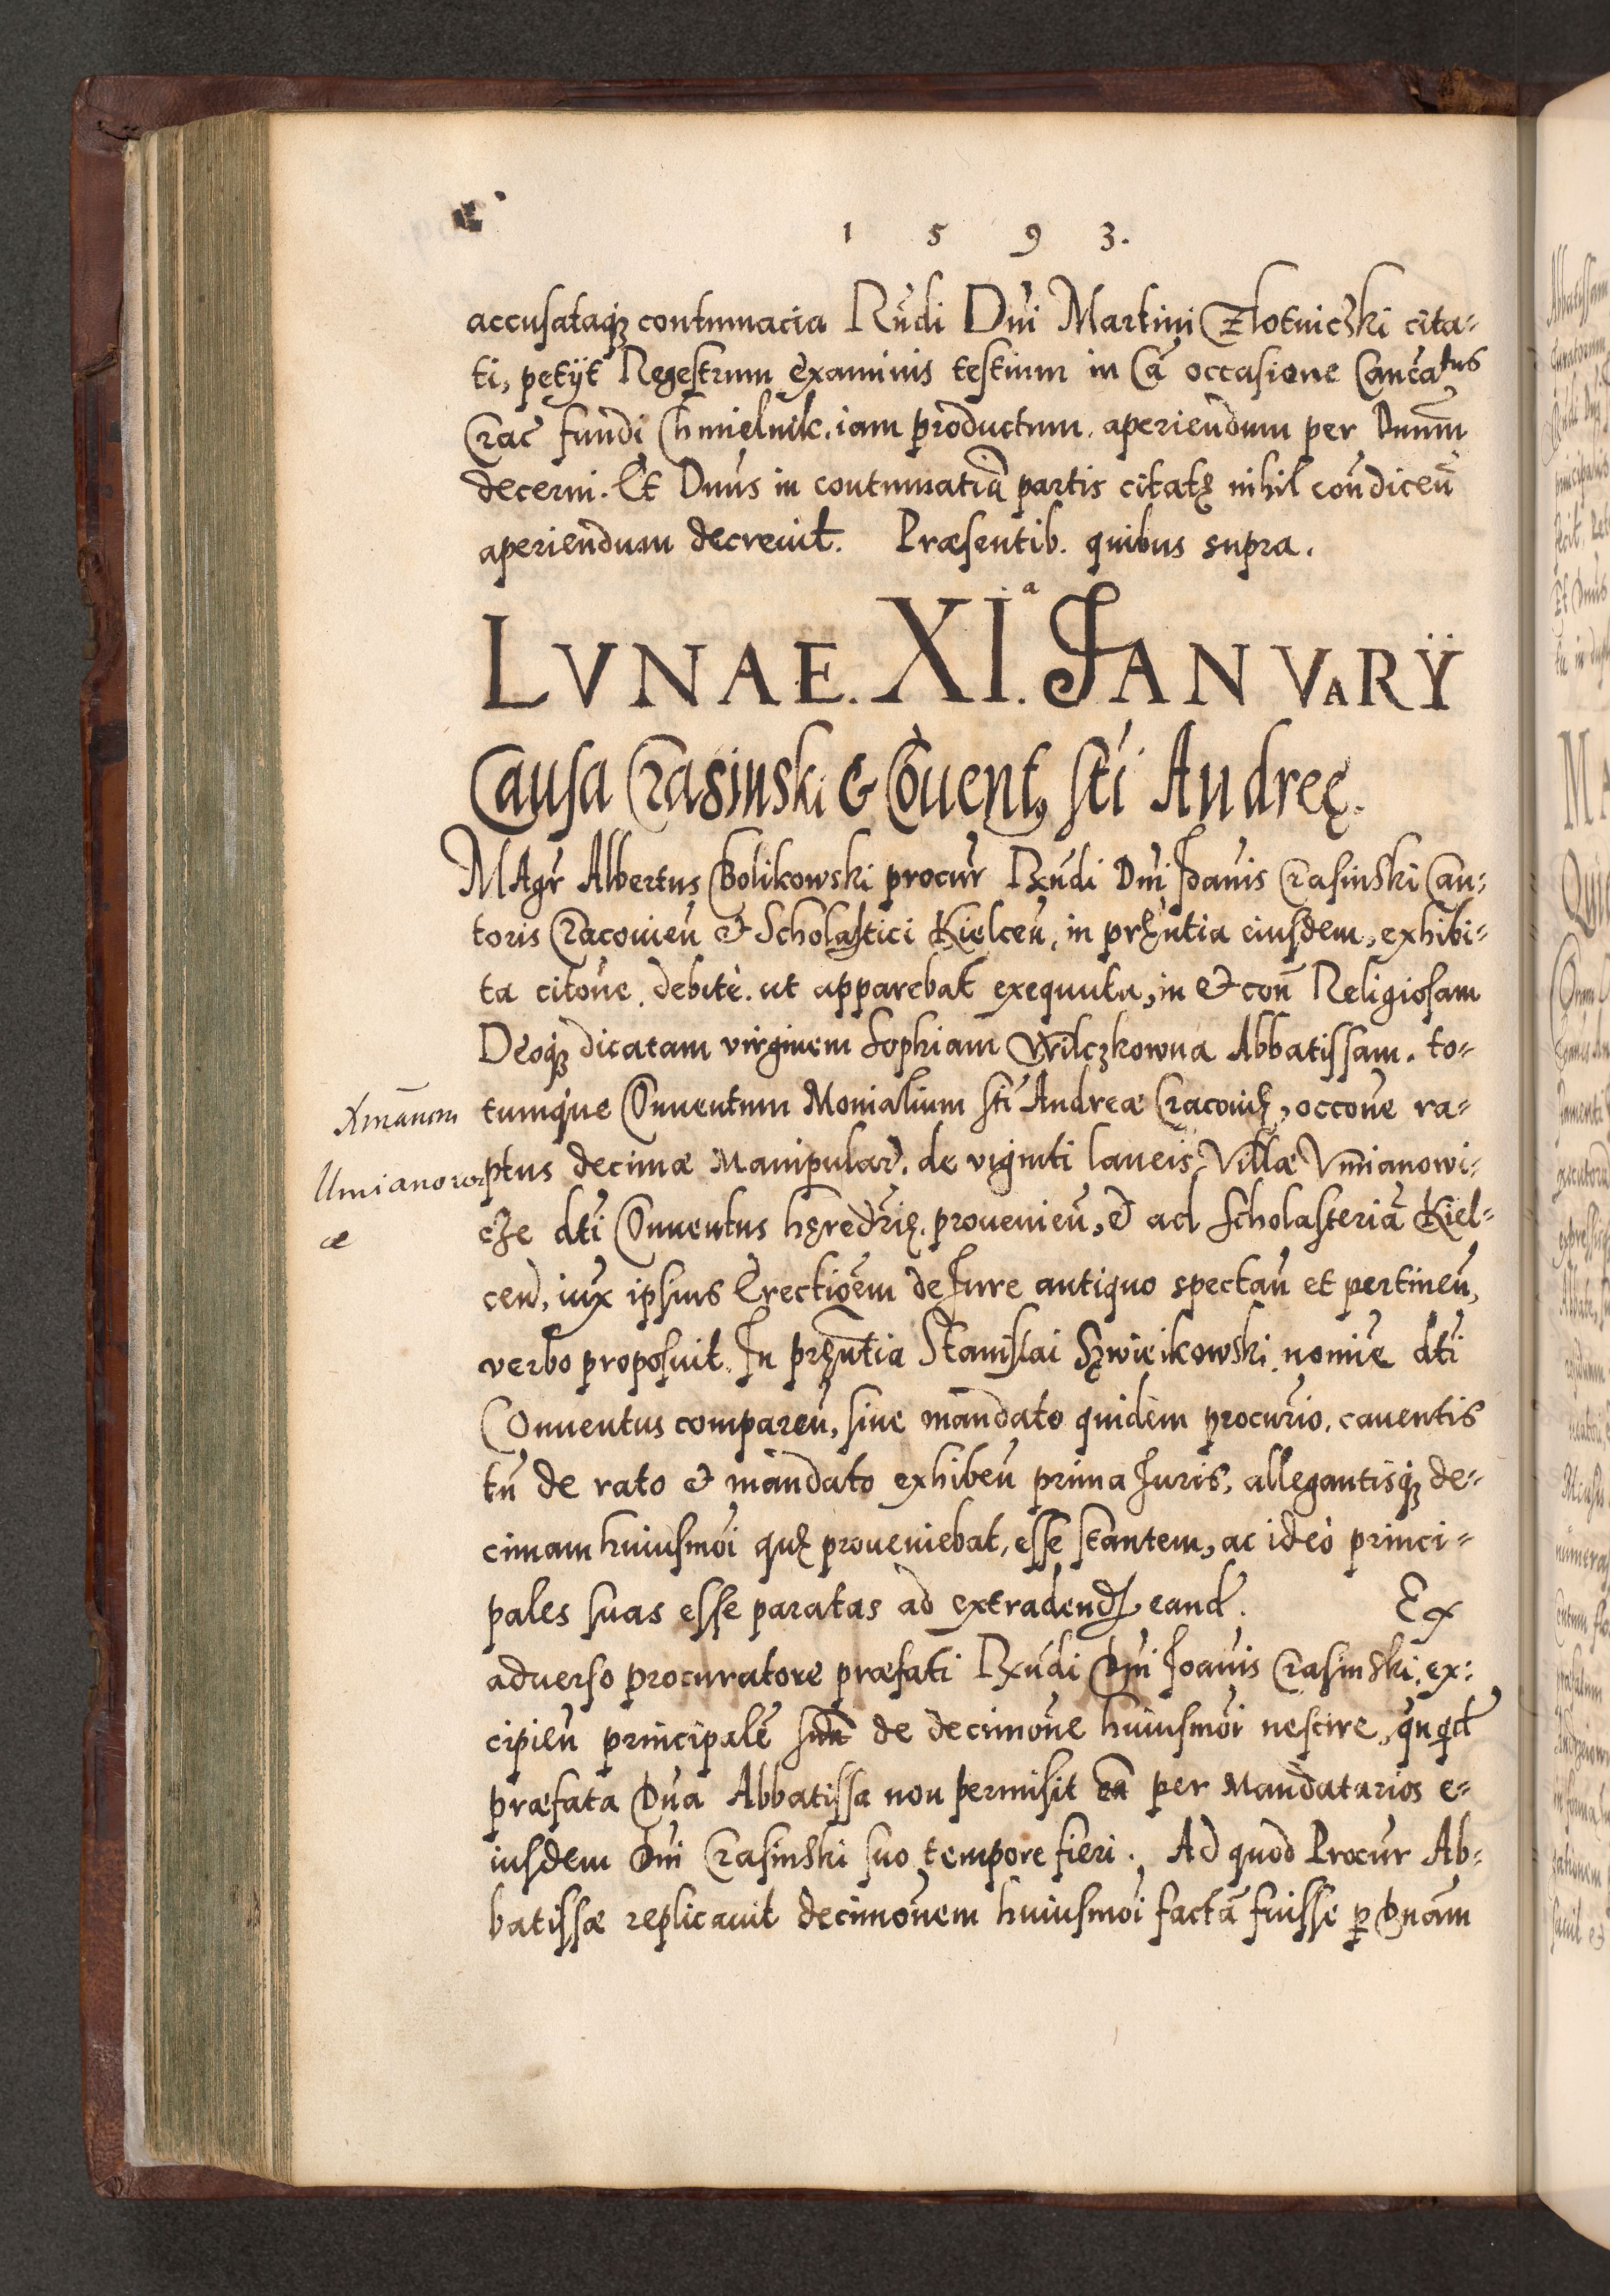 1 5 9 3.
accusataqꝫ contumacia Rndi Dni Martini Zlotniczki cita-
ti, petÿt Regestrum examinis testium in Ca occasione Canctatus
Crac fundi Chmielnik. iam productum. aperiendum per Dnum
decerni. Et Dnus in contumatiā partis citatę nihil condiceñ
aperiendum decreuit. Præsentib. quibus supra.
LVNAE. XI.ª IANVARŸ
Causa Crasinski & Cōuent9 sti Andreę.
MAgr Albertus Bolikowski procur Rxndi Dni Joānis Crasinski Can-
toris Cracouieñ & Scholastici Kielceñ, in pręntia eiusdem, exhibi-
ta citōne, debitè. ut apparebat exequuta, in & coñ Religiosam
Deoqꝫ dicatam virginem Sophiam Wilczkowna Abbatissam. to-
tumque Conuentum Monialium sti Andreæ Cracouię, occōne ra-
ptus decimæ Manipular. de viginti laneis Villæ Vmianowi-
cze dti Conuentus hęredrię. prouenieñ, & ad Scholasteriā Kiel-
cen, iux ipsius Erectiōem de Jure antiquo spectañ et pertineñ,
verbo proposuit. In pręntia Stanislai Szwieikowski nomine dti
Conuentus compareñ, sine mandato quidem procurio, cauentis
tñ de rato & mandato exhibeñ prima Juris, allegantisqꝫ de-
cimam huiusmoi quę proueniebat, esse stantem, ac ideò princi-
pales suas esse paratas ad extradend eand. Ex
aduerso procuratore præfati Rxndi Dni Joānis Crasinski, ex-
cipieñ principalē suū de decimōne huiusmoi nescire,
præfata Dna Abbatissa non permisit eā per Mandatarios e-
iusdem Dni Crasinski suo tempore fieri. Ad quod Procur Ab-
batissæ replicauit decimōnem huiusmoi factā fuisse ꝑ Dnam
Umianow
æ